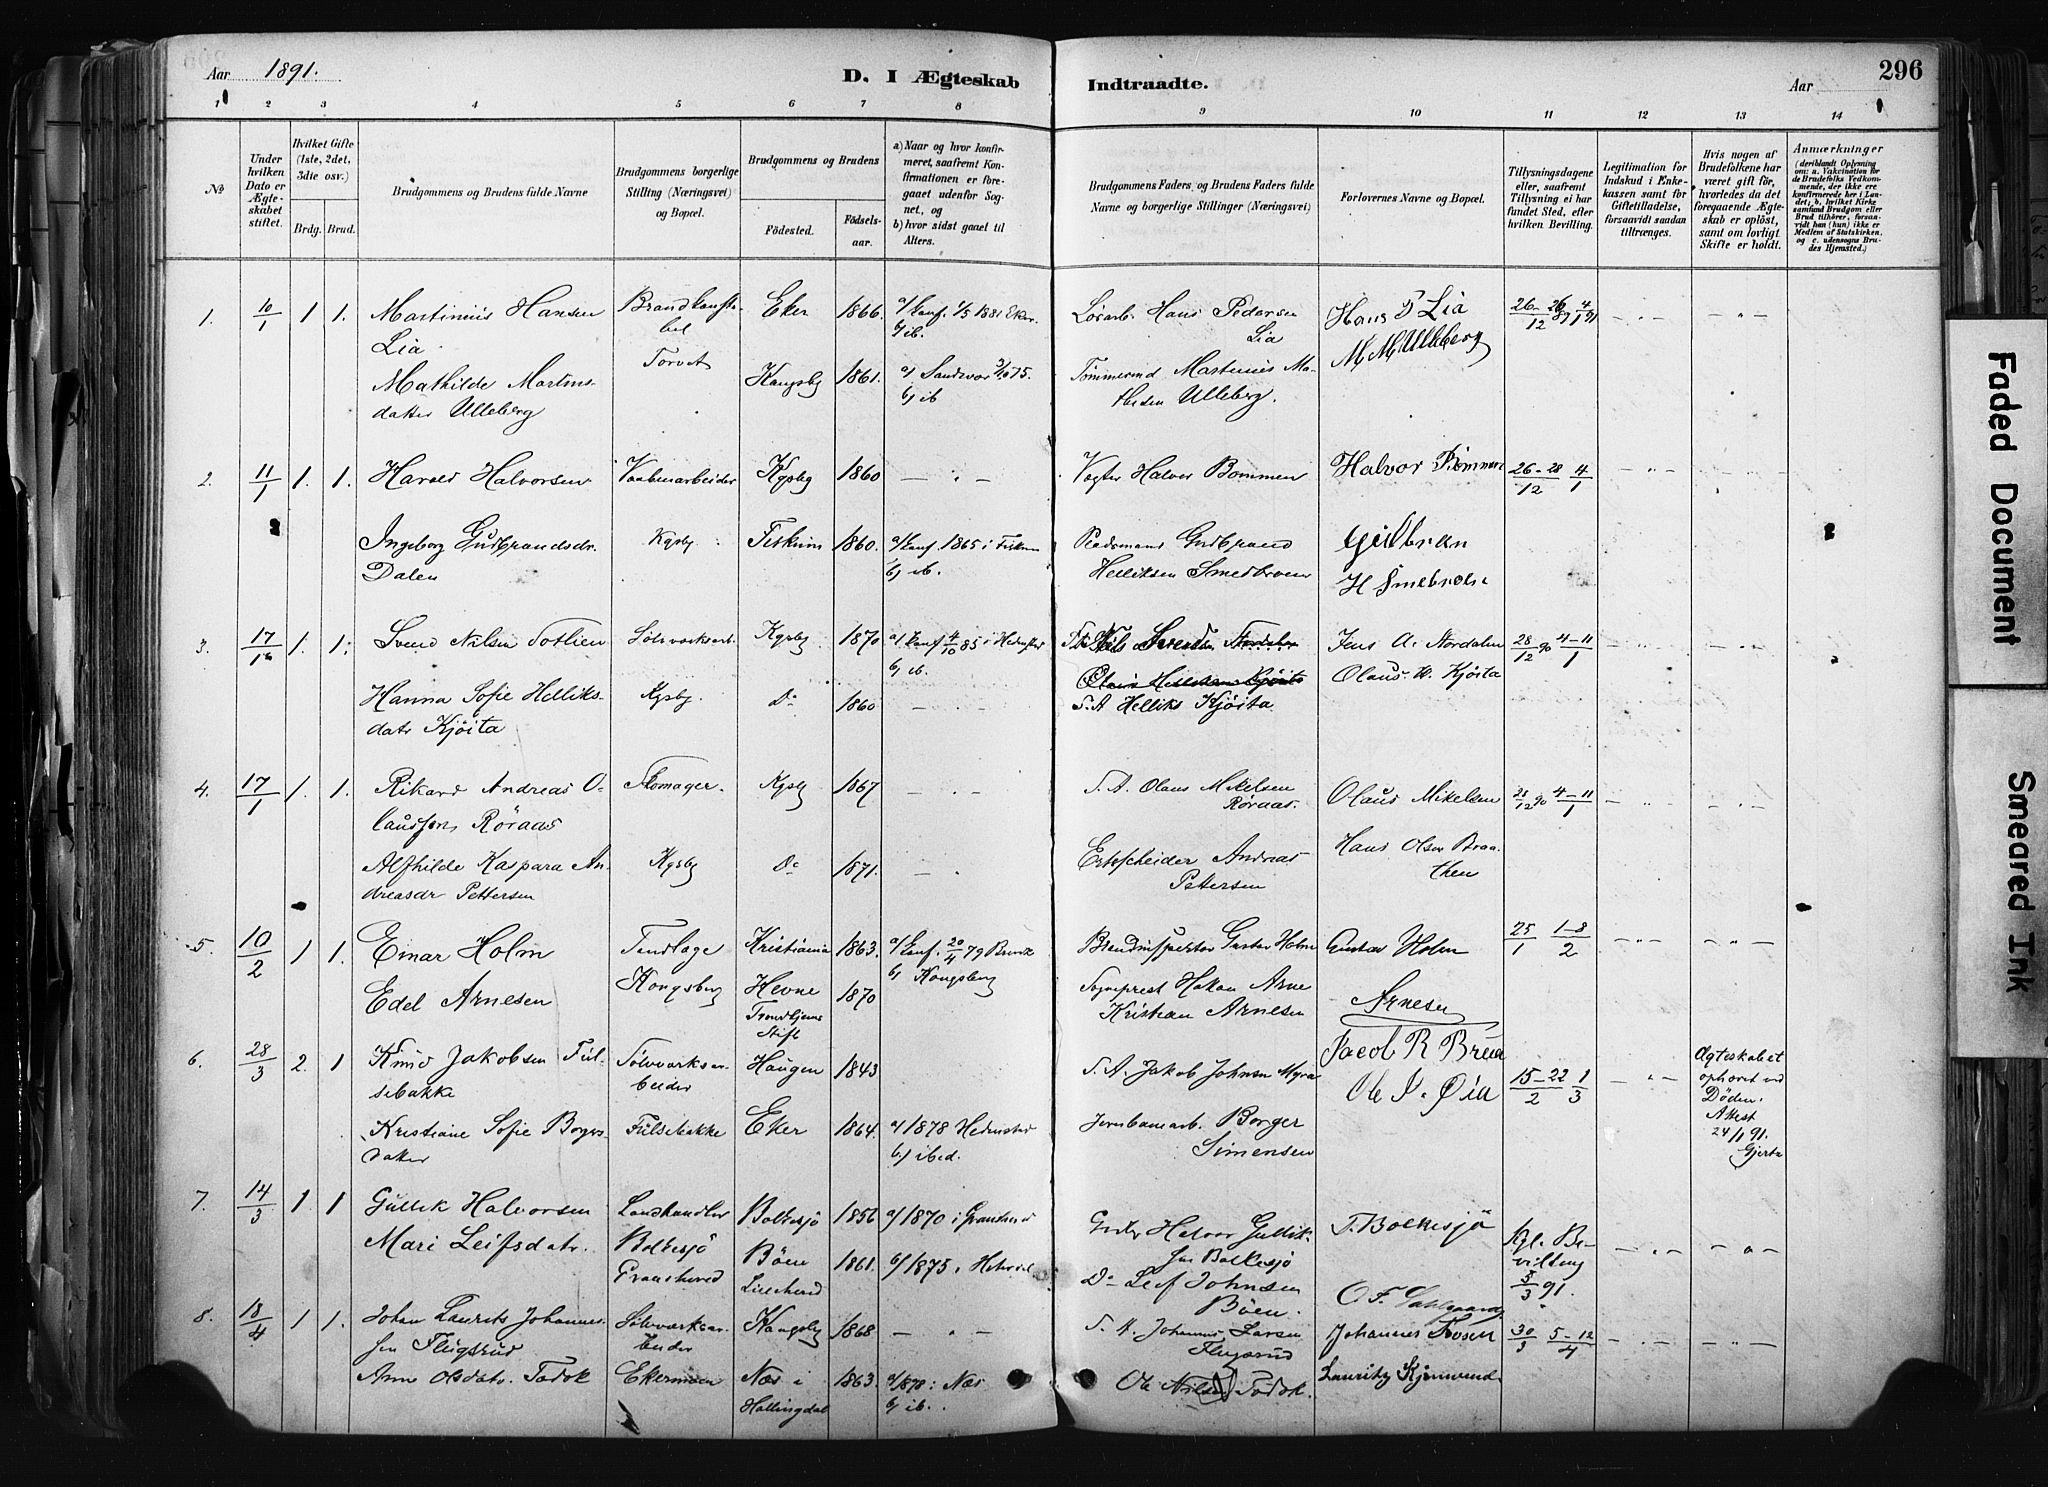 Aar 1891.
D. I Ægteskab Indtraadte.
Aar
296
1 2 3 4 5 6 7 8 9 10 11 12 13 14
No
Under hvilken Dato er Ægteskabet stiftet.
Hvilket Gifte (1ste, 2det, 3die osv.)
Brdg. Brud.
Brudgommens og Brudens fulde Navne
Brudgommens borgerlige Stilling (Næringsvei) og Bopæl.
Brudgommens og Brudens
Fødested. Fødsels-aar.
a) Naar og hvor konfirmeret, saafremt Konfirmationen er foregaaet udenfor Sognet, og
b) hvor sidst gaaet til Alters.
Brudgommens Faders og Brudens Faders fulde Navne og borgerlige Stillinger (Næringsvei)
Forlovernes Navne og Bopæl.
Tillysningsdagene eller, saafremt Tillysning ei har fundet Sted, efter hvilken Bevilling.
Legitimation for Indskud i Enkekassen samt for Giftetilladelse, forsaavidt saadan tiltrænges.
Hvis nogen af Brudefolkene har været gift før, hvorledes da det foregaaende Ægteskab er opløst, samt om lovligt Skifte er holdt.
Anmærkninger (deriblandt Oplysning om: a. Vakcination for de Brudefolks Vedkommende, der ikke ere konfirmerede her i Landet; b. hvilket Kirkesamfund Brudgom eller Brud tilhører, forsaavidt han (hun) ikke er Medlem af Statskirken, og c. udensogns Brudes Hjemsted.)
1. 10/1 1 1. Martinius Hansen Brandkonsta- Eker 1866. a/ konf. 1/5 1881 Eker. Hans Pedersen Hans P Lia 26-28/12 4/1 91 - " - - " -
Lia. bel b/ ib. Lia M. M. Ulleberg
Mathilde Martins- Torvet Kongsbg 1861. a/ Sandsvær 3/10 75. Tømmermd Martinius Ma-
datter Ulleberg b/ ib thisen Ulleberg.
2. 11/1 1. 1. Harald Halvorsen Vaabenarbeider Kgsbg 1860 - " - Vogter Halvor Bommen Halvor Bommen 26-28/12 4/1 - " - - " -
Ingeborg Gudbrandsdr. Kgsbg Fiskum 1860. a/ konf. 1865 i Fiskum Pladsmand Gudbrand Gulbran
Dalen b/ ib. Helliksen Smedbroen H Smebroen
3. 17/1 1. 1. Svend Nilsen Sølvverksarb. Kgsbg. 1870 a/ konf 4/10 85 i Hedensted Nils Svendsen Jens A. Nordalen 28/12 90 4-11/1 - " - - " -
b/ ib. Olaus H. Kjøita
Hanna Sofie Helliks- Kgsbg. Do 1860 - " - S. A Helliks Kjøita
datr Kjøita
4. 17/1 1. 1. Rikard Andreas O- Skomager. Kgsbg 1867 - " - S. A. Olaus Mikelsen Olaus Mikelsen 28/12 90 4-11/1 - " - - " -
laussen Røraas Røraas.
Alfhilde Kaspara An- Kgsbg Do 1871. - " - Ertsscheider Andreas Hans Olsen Braa-
dreasdr Pettersen Pettersen then
5. 10/2 1 1. Einar Holm Tandlæge Kristiania 1863. a/ konf. 20/4 79 Brandinspektør Gustav Holm Gustav Holm 25/1 1-8/2 - " - - " -
Kongsberg b/ Kongsberg
Edel Arnesen Hevne 1870 Sogneprest Hakon Arne Arnesen
Trondhjems Stift Kristian Arnesen
6. 28/3 2. 1 Knud Jakobsen Ful- Sølvverksar- Haugen 1843 S. A. Jakob Johnsen Myra Jacob R Breia 15-22/2 1/3 - " - Ægteskabet
sebakke beider Ole J. Øia ophævet ved
Kristiane Sofie Borgers- Fulsebakke Eker 1864. a/ 1878 Hedensted Jernbanearb. Borger Døden.
datter b/ ibid. Simensen Attest
24/1 91.
7. 14/3 1. 1 Gullik Halvorsen Landhandler Bolkesjø 1856 a/ 1870 i Gransherred Grdbr Halvor Gullik- T. Bolkesjø Kgl. Be- - " - - " -
Bolkesjø sen Bolkesjø villing
Mari Leifsdatr. Gransherred Bøen 1861. b/ 1875 Do Leif Johnsen 5/3 91.
Lilleherred Bøen.
8. 18/4 1 1. Johan Laurits Johannes- Sølvverksar- Kongsbg 1868 - " - S. A. Johannes Larsen Johannes Fosen 30/3 5-12/4 - " - - " -
sen Flugsrud beider Flugsrud
Anne Olsdatr. Todok Ekermoen Næs i 1863. a/ 1870 i Næs Ole Nilsen Todok. Lauritz
Hallingdal b/ ib.
Faded Document
Smeared Ink